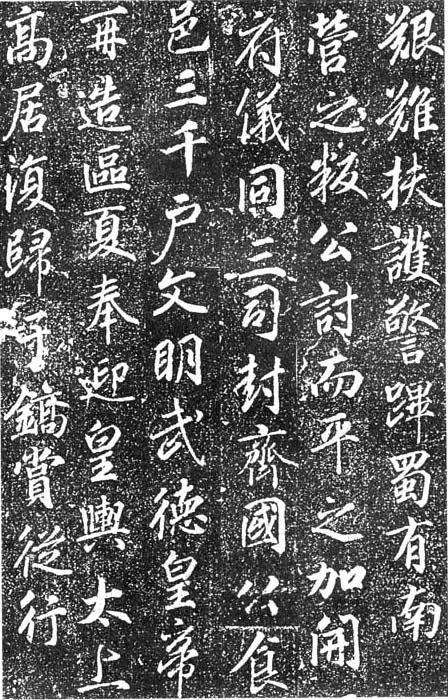 艱難扶護警蹕蜀有南
營之叛公討而平之加開
府儀同三司封齊國公食
邑三千戶文明武德皇帝
再造區夏奉迎皇輿太上
高居復歸于鎬賞從行